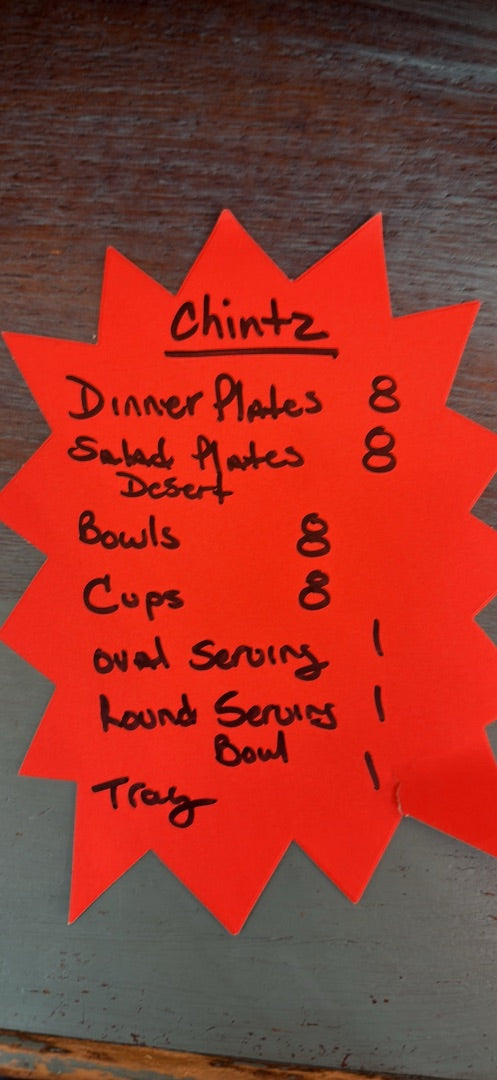 Chintz
Dinner Plates 8
Salad Plates 8
Desert
Bowls 8
Cups 8
oval Serving 1
Round Serving 1
Bowl
Tray 1